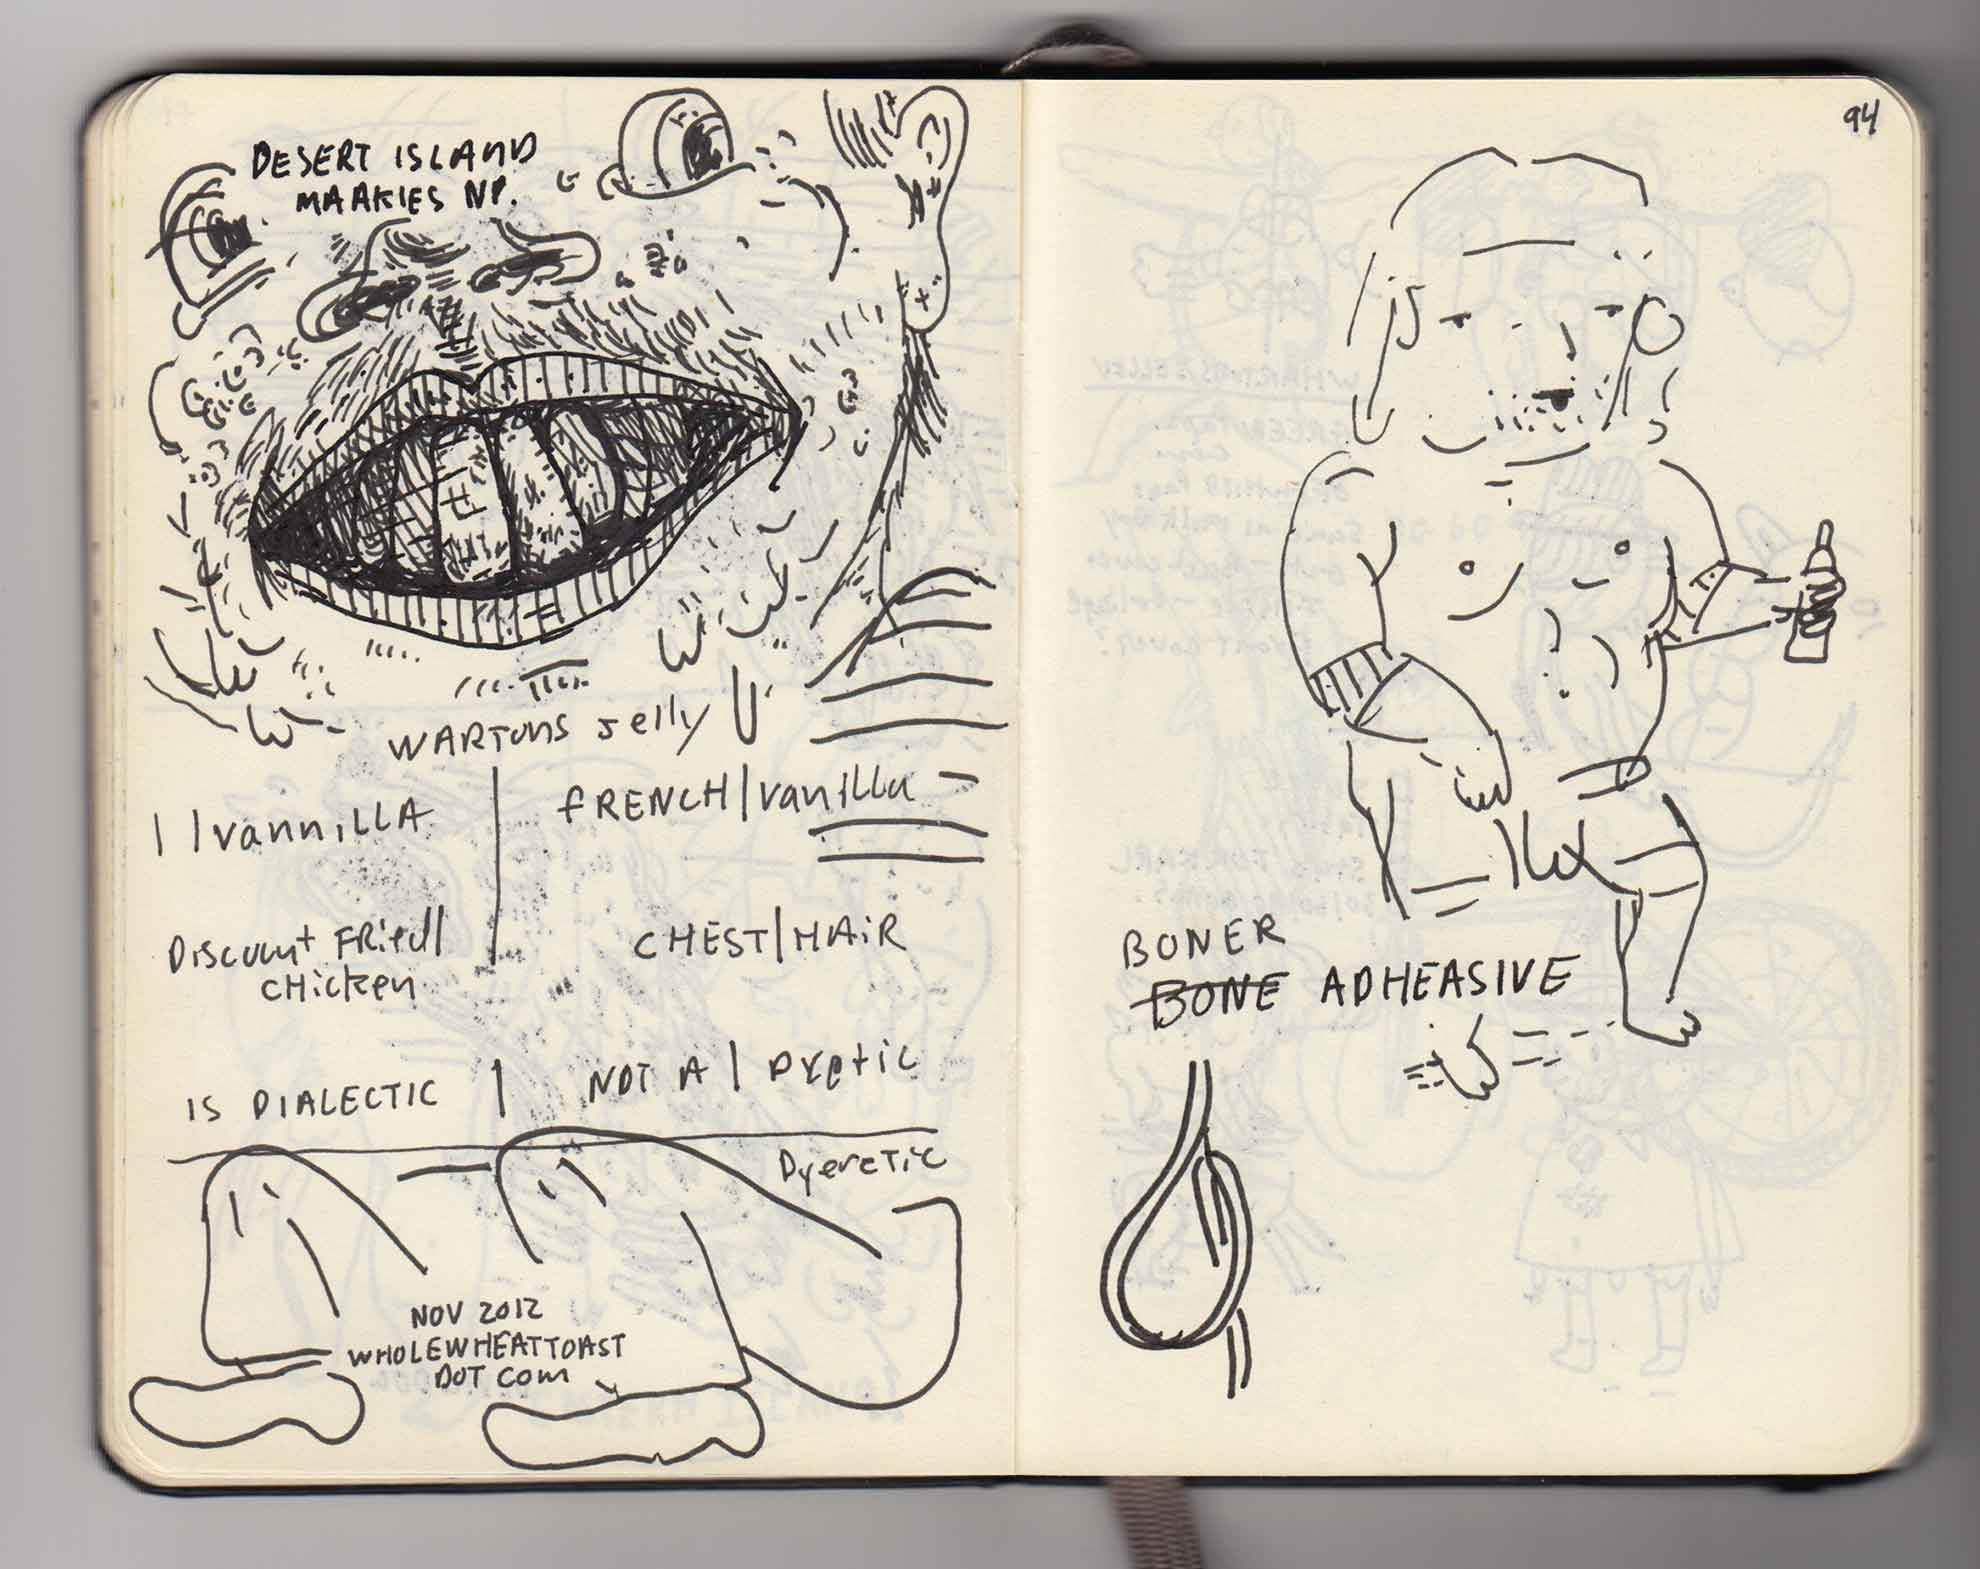 DESERT ISLAND
MAAKIES NP.
WARTONS JELLY
| | vannILLA
FRENCH | vanilla
Discount FRied |
CHicken
CHEST | HAiR
IS DIALECTIC |
NOT A | Dyetic
Dyeretic
NOV 2012
WHOLEWHEATTOAST
DOT COM
94
BONER
BONE ADHEASIVE